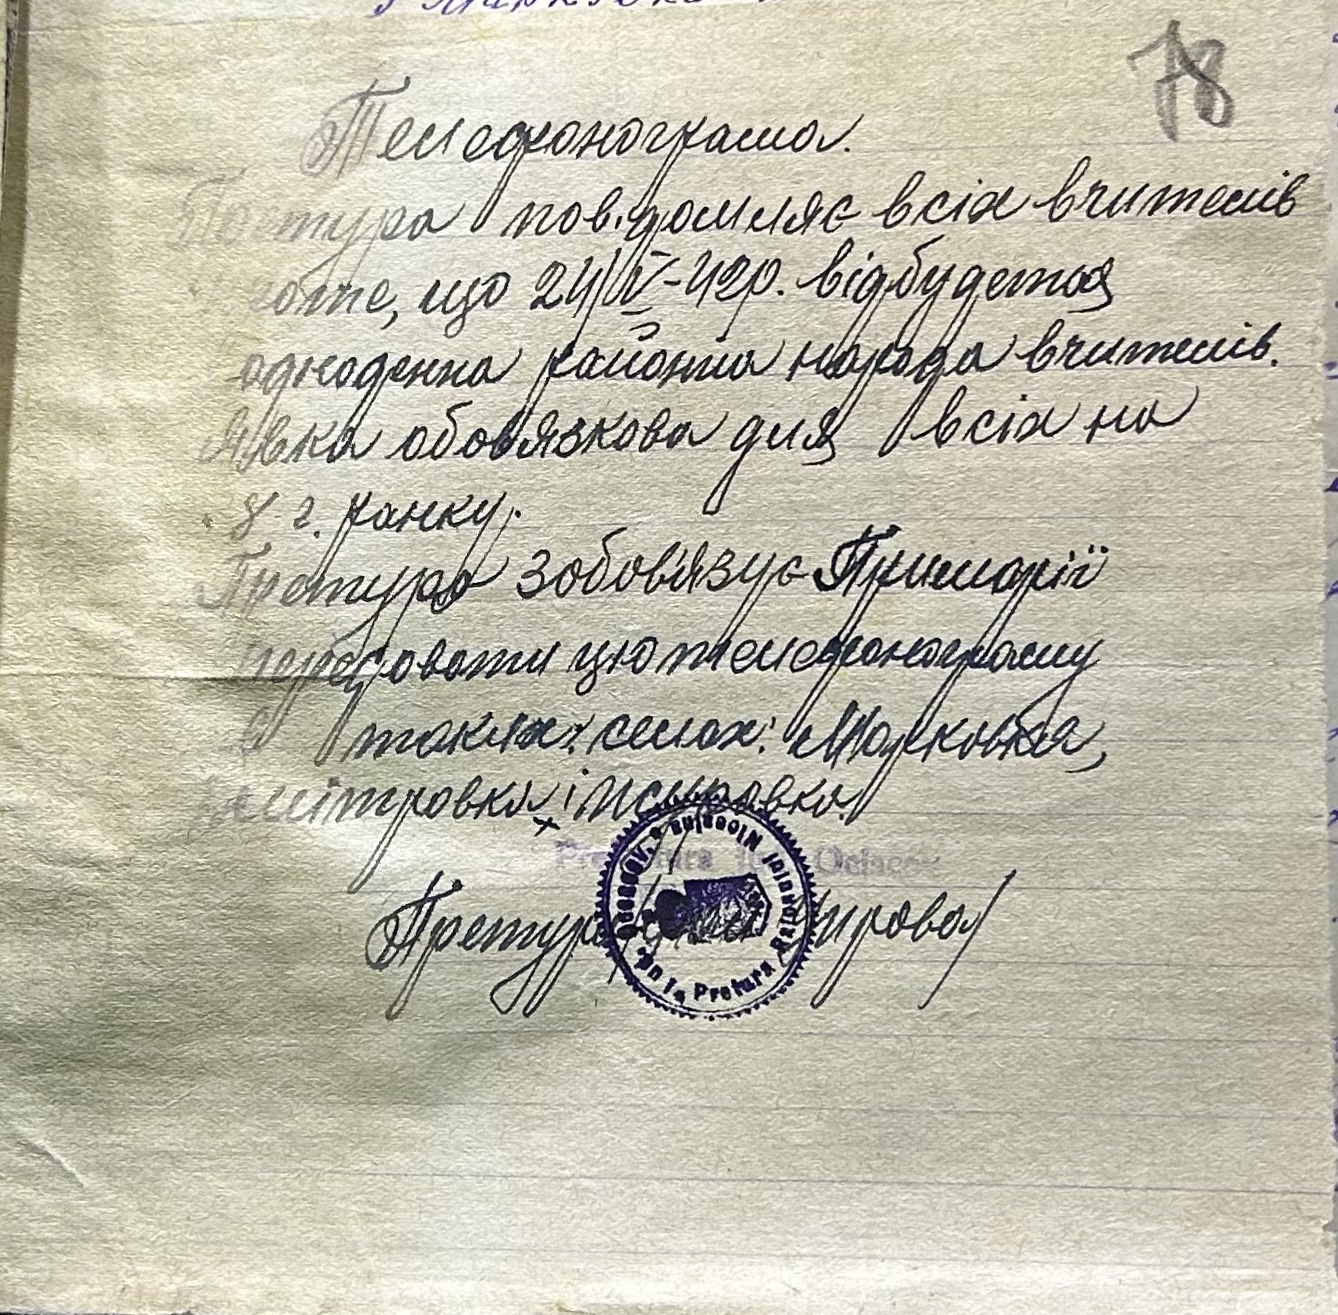 78
Телефонограма.
Претура повідомляє всіх вчителів
що 24/IV-42р. відбудеться
одноденна районна нарада вчителів.
Явка обов'язкова для всіх на
8 г. ранку.
Претура зобов'язує Примарії
передати цю телефонограму
в таких: селах: Марковка,
Дмітровка і Писаровка.
Pretura Ociacov
Претура